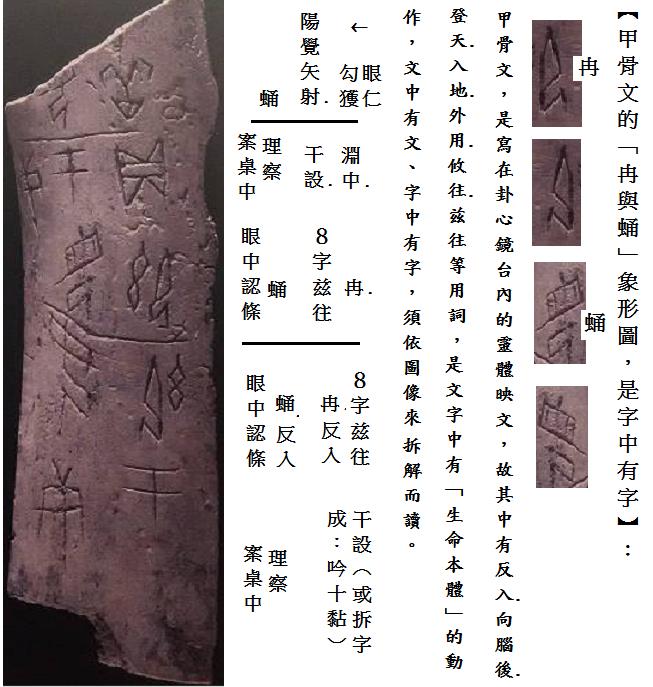 【甲骨文的「冉與蛹」象形圖，是字中有字】：
冉
蛹
甲骨文，是寫在卦心鏡台內的靈體映文，故其中有反入.向腦後.
登天.入地.外用.攸往.茲往等用詞，是文字中有「生命本體」的動
作，文中有文、字中有字，須依圖像來拆解而讀。
眼仁
←勾獲
陽覺矢射.
蛹
淵中.
干設.
理察
案桌中
冉.
8字茲往
蛹
眼中認條
8字茲往
冉.反入
蛹.反入
眼中認條
干設（或拆字
成：吟十黏）
理察
案桌中